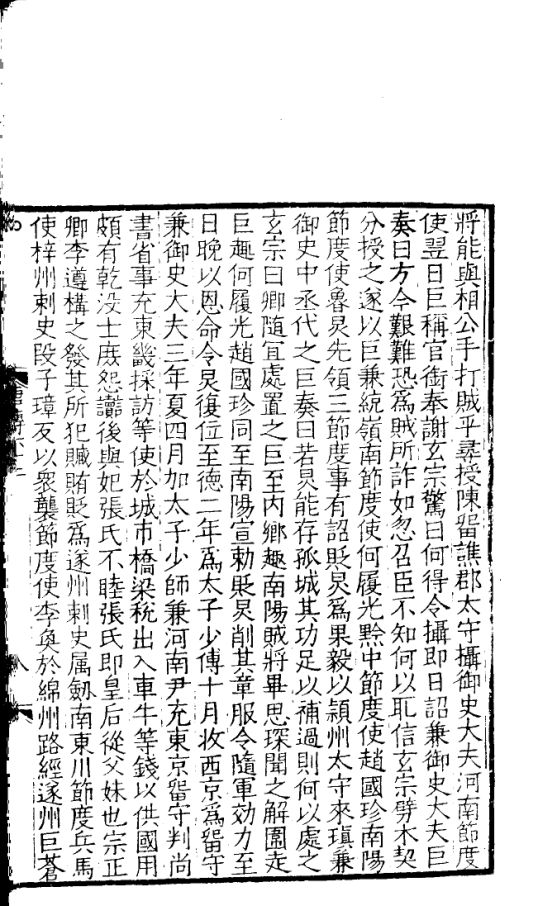 將能與相公手打賊乎尋授陳留譙郡太守攝御史大夫河南節度
使翌日巨稱官銜奉謝玄宗驚曰何得令攝即日詔兼御史大夫巨
奏曰方今艱難恐爲賊所詐如忽召臣不知何以取信玄宗劈木契
分授之遂以巨兼統嶺南節度使何履光黔中節度使趙國珍南陽
節度使魯炅先領三節度事有詔貶炅爲果毅以潁州太守來瑱兼
御史中丞代之巨奏曰若炅能存孤城其功足以補過則何以處之
玄宗曰卿隨宜處置之巨至內鄉趣南陽賊將畢思琛聞之解圍走
巨趣何履光趙國珍同至南陽宣勅貶炅削其章服令隨軍効力至
日晚以恩命令炅復位至德二年爲太子少傅十月收西京爲留守
兼御史大夫三年夏四月加太子少師兼河南尹充東京留守判尚
書省事充東畿採訪等使於城市橋梁稅出入車牛等錢以供國用
頗有乾没士庶怨讟後與妃張氏不睦張氏即皇后從父妹也宗正
卿李遵構之發其所犯贓賄貶爲遂州刺史属劒南東川節度兵馬
使梓州刺史段子璋反以衆襲節度使李奐於綿州路經遂州巨蒼